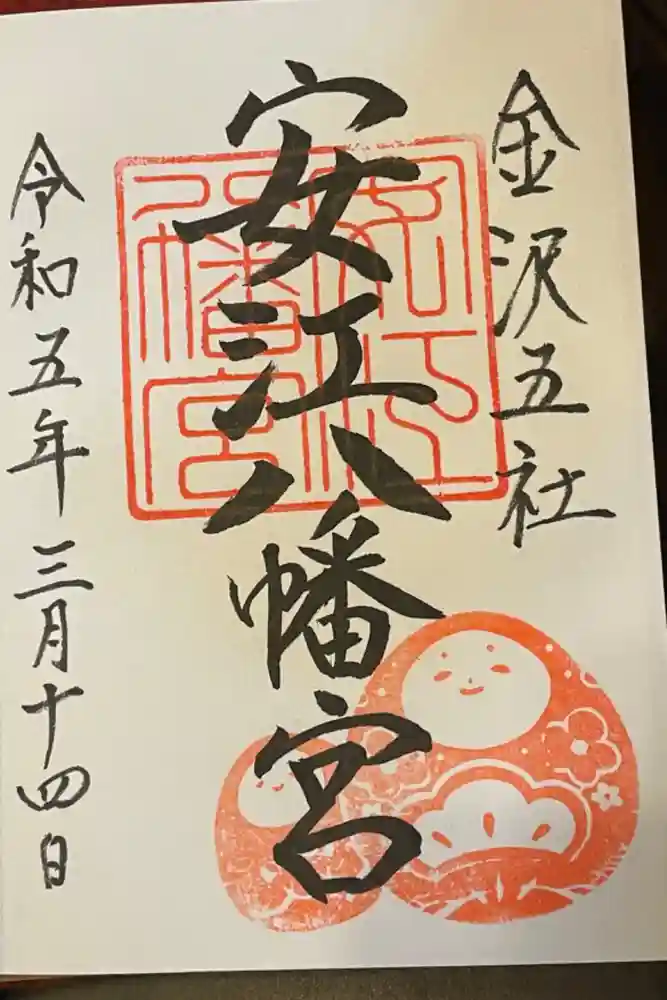 金沢五社
安江八幡宮
安江八幡宮
令和五年三月十四日